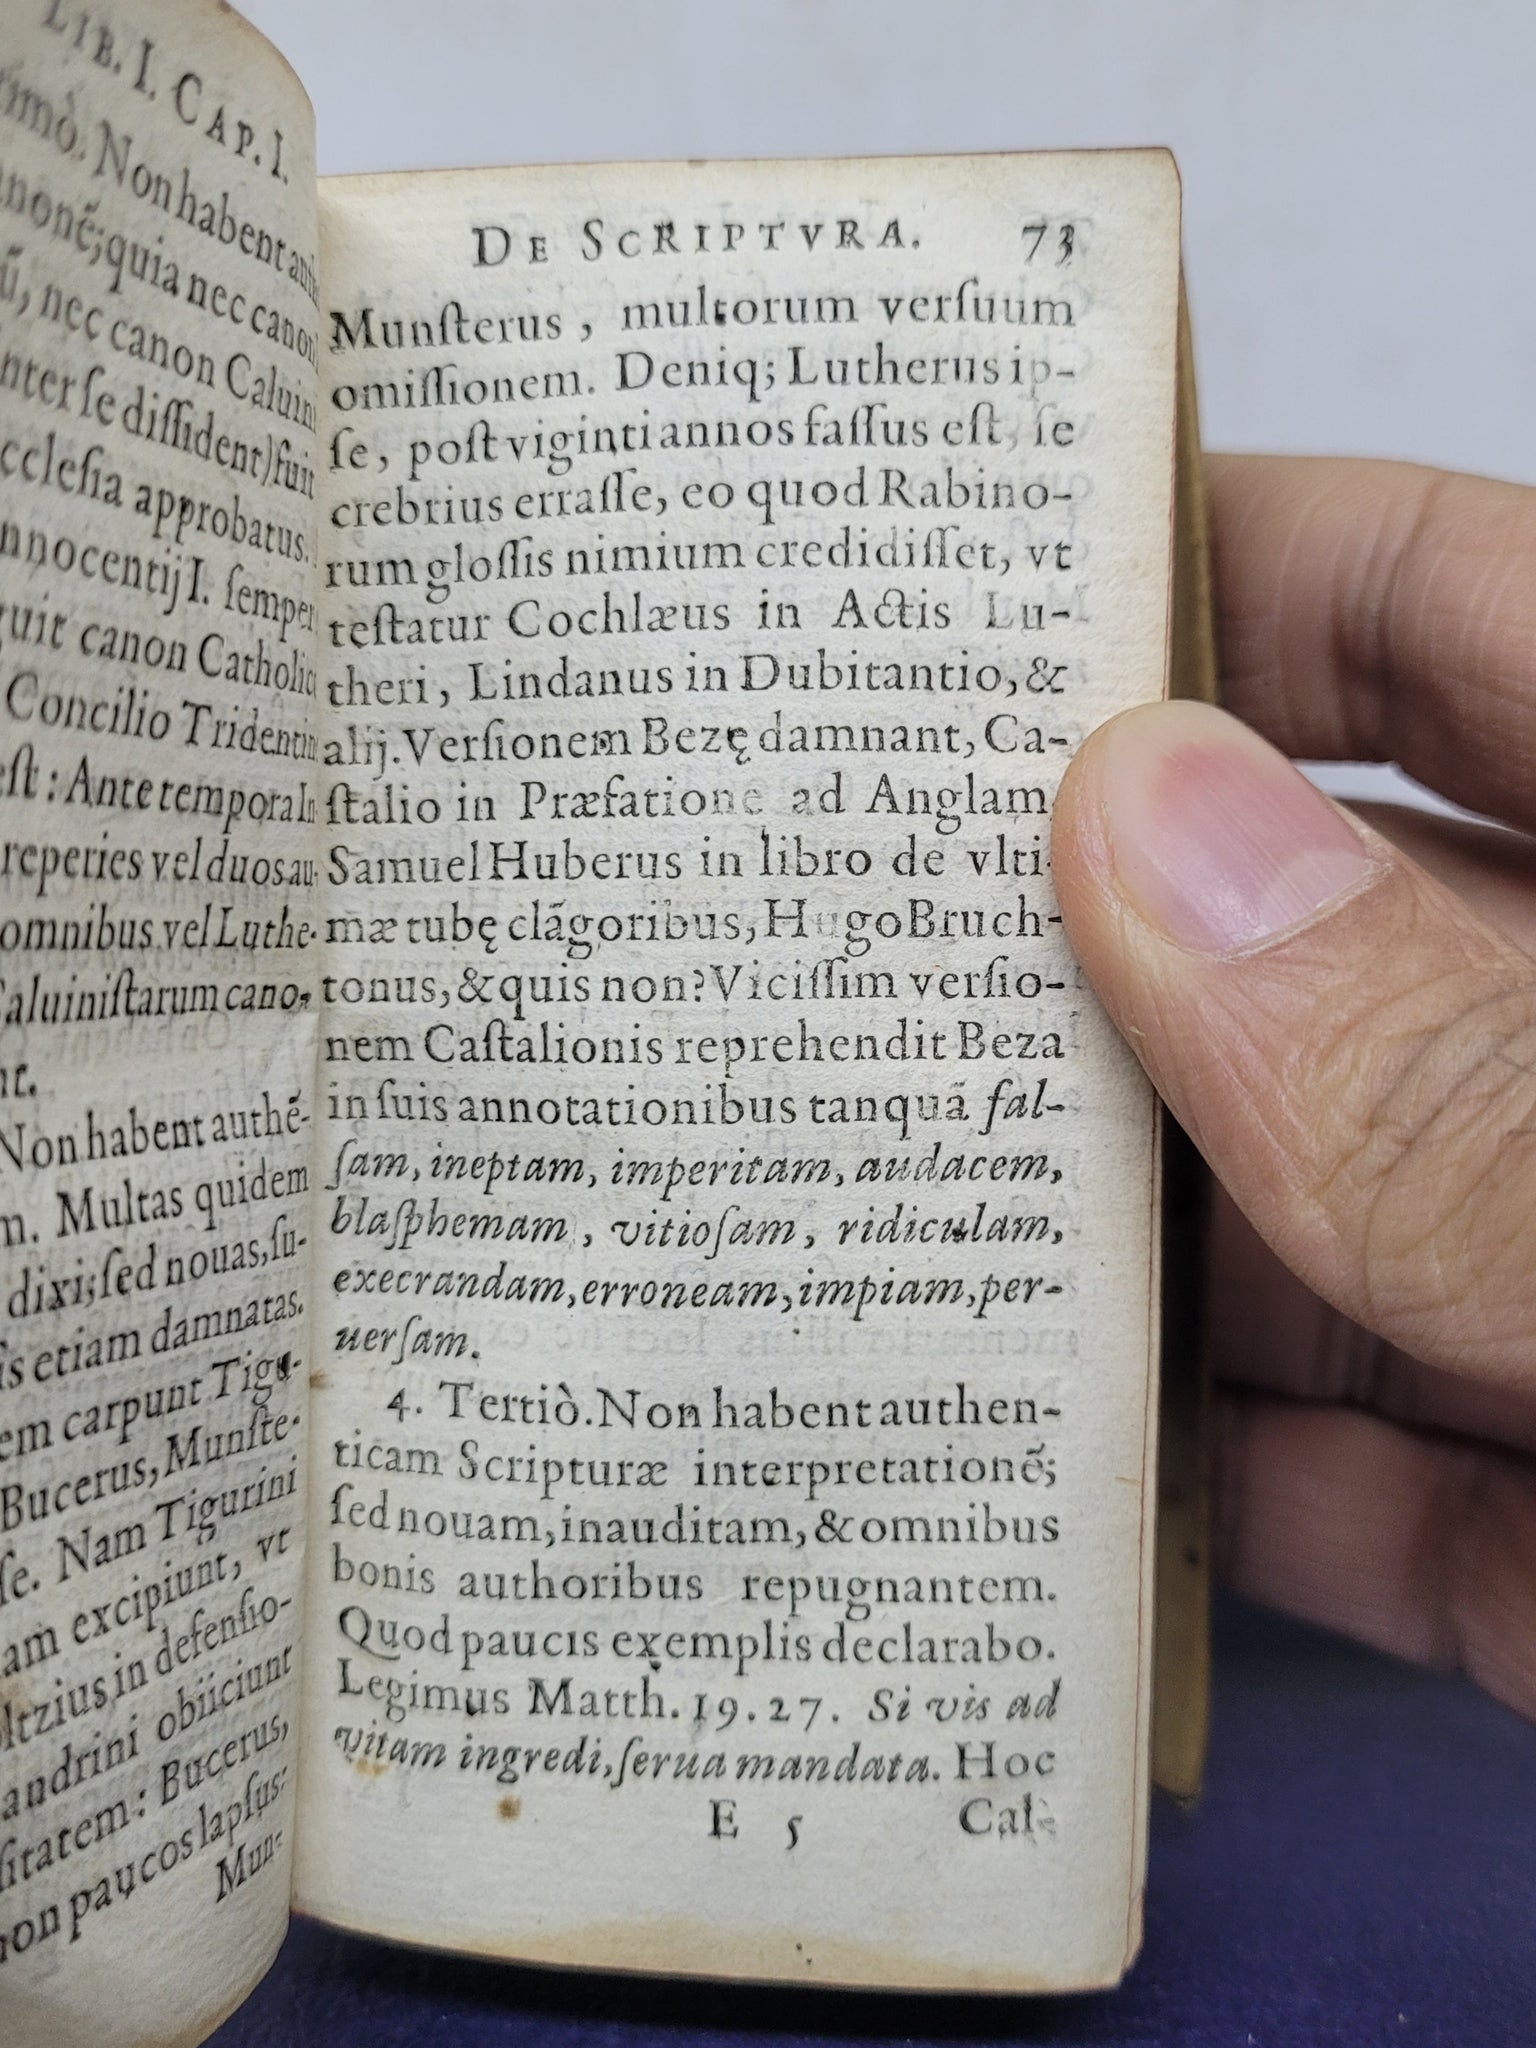 LIB. I. CAP. I.
Non habent
quia nec canon
nec canon Caluini
inter se dissident) fuit
approbatus.
Innocentij I. semper
canon Catholic
Concilio Tridentin
est: Ante tempora In
reperies vel duos au-
omnibus vel Luthe-
Caluinistarum cano-
Non habent authē-
Multas quidem
dixi; sed nouas, su-
etiam damnatas.
carpunt Tigu-
Bucerus, Munste-
Nam Tigurini
excipiunt, vt
in defensio-
obiiciunt
Bucerus,
non paucos lapsus:
Mun-
DE SCRIPTVRA. 73
Munſterus, multorum verſuum
omiſſionem. Deniq; Lutherus ip-
ſe, poſt viginti annos faſſus eſt, ſe
crebrius erraſſe, eo quod Rabino-
rum gloſſis nimium credidiſſet, vt
teſtatur Cochlæus in Actis Lu-
theri, Lindanus in Dubitantio, &
alij. Verſionem Bezę damnant, Ca-
ſtalio in Præfatione ad Anglam,
Samuel Huberus in libro de vlti-
mæ tubę clāgoribus, Hugo Bruch-
tonus, & quis non? Viciſſim verſio-
nem Caſtalionis reprehendit Beza
in ſuis annotationibus tanquā fal-
ſam, ineptam, imperitam, audacem,
blaſphemam, vitioſam, ridiculam,
execrandam, erroneam, impiam, per-
uerſam.
4. Tertiò. Non habent authen-
ticam Scripturæ interpretationē;
ſed nouam, inauditam, & omnibus
bonis authoribus repugnantem.
Quod paucis exemplis declarabo.
Legimus Matth. 19. 27. Si vis ad
vitam ingredi, ſerua mandata. Hoc
E 5 Cal-